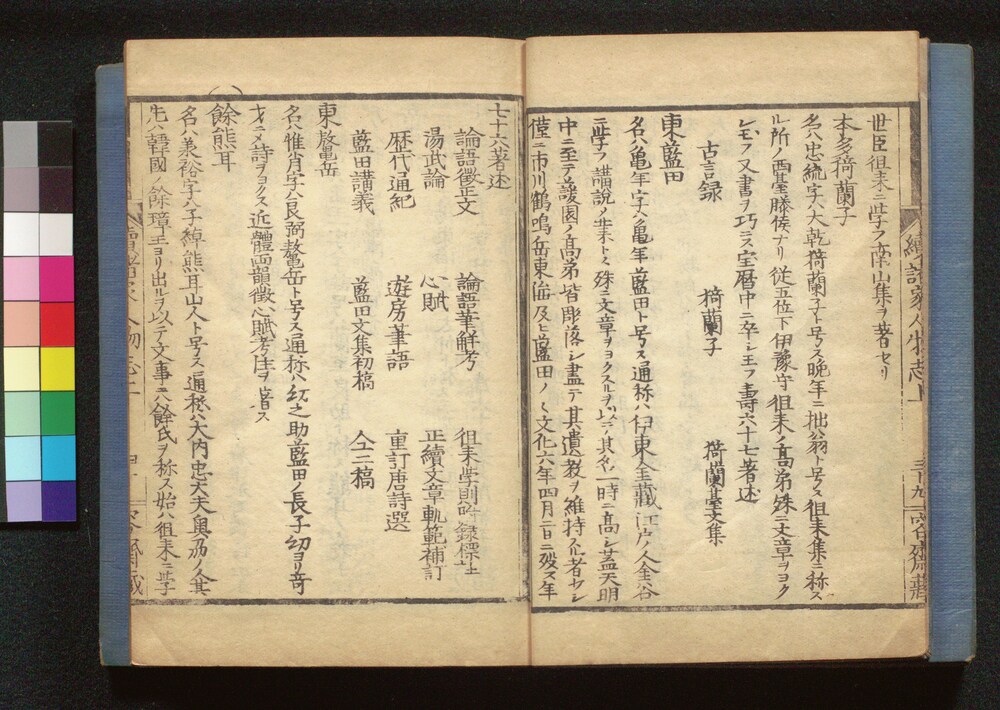 世臣徂徠ニ学フ南山集ヲ著セリ
本多猗蘭子
名ハ忠統字ハ大乾猗蘭子ト号ス晩年ニ拙翁ト号ス徂徠集ニ称ス
ル所ノ西臺滕侯ナリ従五位下伊豫守徂徠ノ高弟殊ニ文章ヲヨク
シ玉フ又書ヲ巧ニス宝暦中ニ卒シ玉フ壽六十七著述
古言録 猗蘭子 猗蘭臺文集
東藍田
名ハ亀年字ハ亀年藍田ト号ス通称ハ伊東金藏江戸ノ人金谷
ニ学フ講説ノ業トス殊ニ文章ヲヨクスルヲ以テ其名一時ニ高シ蓋天明
中ニ至テ蘐園ノ高弟皆彫落シ盡テ其遺教ヲ維持スル者少シ
僅ニ市川鶴鳴岳東海及ヒ藍田ノミ文化六年四月二日ニ歿ス年
七十六著述
論語徴正文 論語筆解考 徂徠学則附録標註
湯武論 心賦 正續文章軌範補訂
歴代通紀 遊房筆語 重訂唐詩選
藍田講義 藍田文集初稿 仝二稿
東敖鼇岳
名ハ惟肖字ハ良弼敖鼇岳ト号ス通称ハ紅之助藍田ノ長子幼ヨリ奇
才ニメ詩ヲヨクス近體雨韻徴心賦考注ヲ著ス
餘熊耳
名ハ兼裕字ハ子綽熊耳山人ト号ス通称ハ大内忠太夫奥刕ノ人其
先ハ韓國ノ餘璋王ヨリ出ルヲ以テ文事ニハ餘氏ヲ称ス始ハ徂徠ニ学
續諸家人物志上 三十九